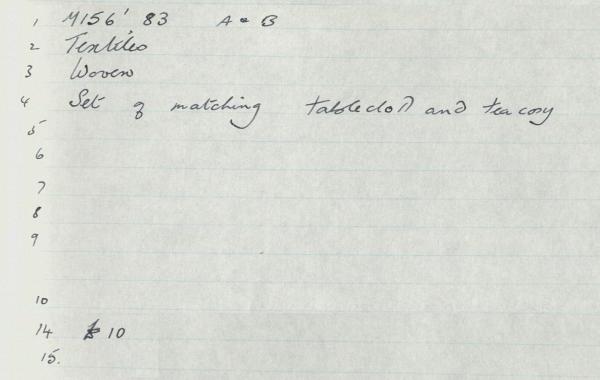 1 M156' 83 A & B
2 Textiles
3 Woven
4 Set of matching tablecloth and tea cosy
5
6
7
8
9
10
14 £ 10
15.